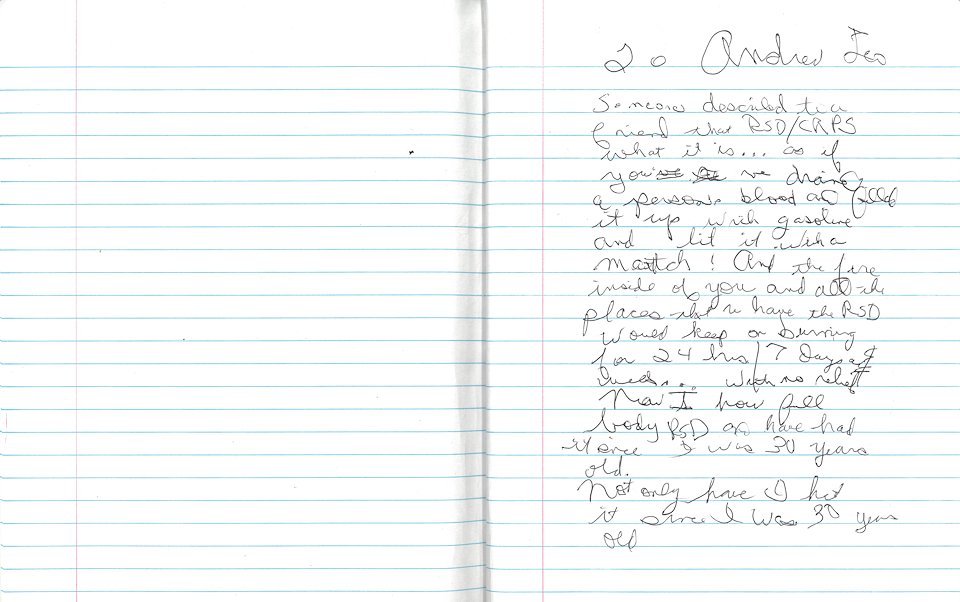 To Andrew
Someone described to a
friend that RSD/CRPS
what it is... as if
you've drained
a persons blood and filled
it up with gasoline
and lit it with a
match! And the fire
inside of you and all the
places that u have the RSD
would keep on burning
for 24 hrs/7 Days a
week... with no relief
Now I have full
body RSD and have had
it since I was 30 years
old.
Not only have I had
it since I was 30 years
old